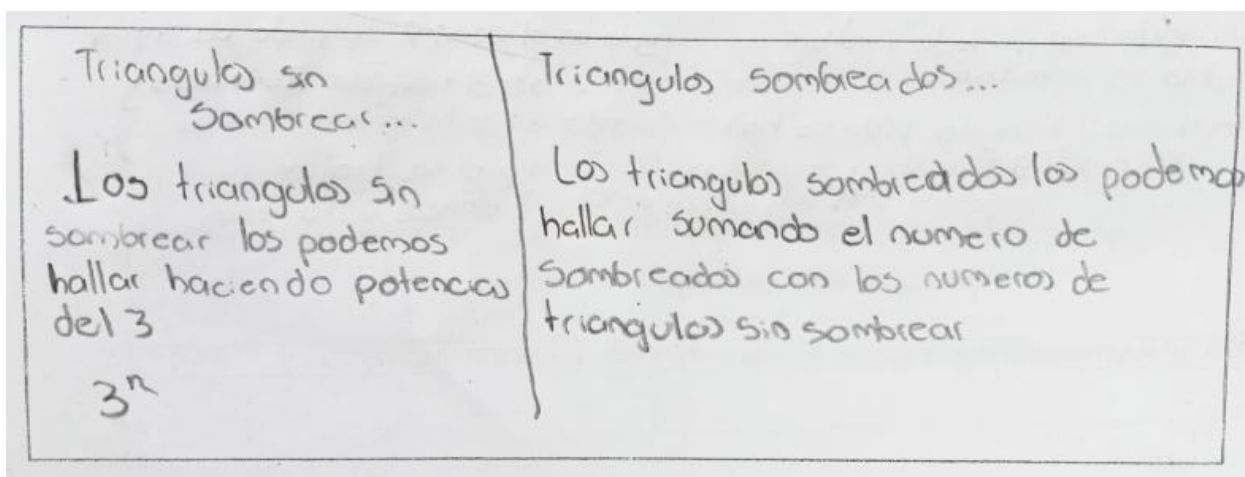 Triangulos sin
sombrear...
Los triangulos sin
sombrear los podemos
hallar haciendo potencias
del 3
3ⁿ
Triangulos sombreados...
Los triangulos sombreados los podemos
hallar sumando el numero de
sombreados con los numeros de
triangulos sin sombrear